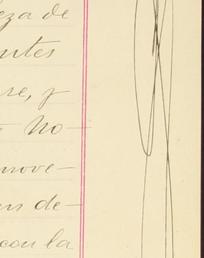 eza de
ntes
re, y
No-
nove-
en de-
con la